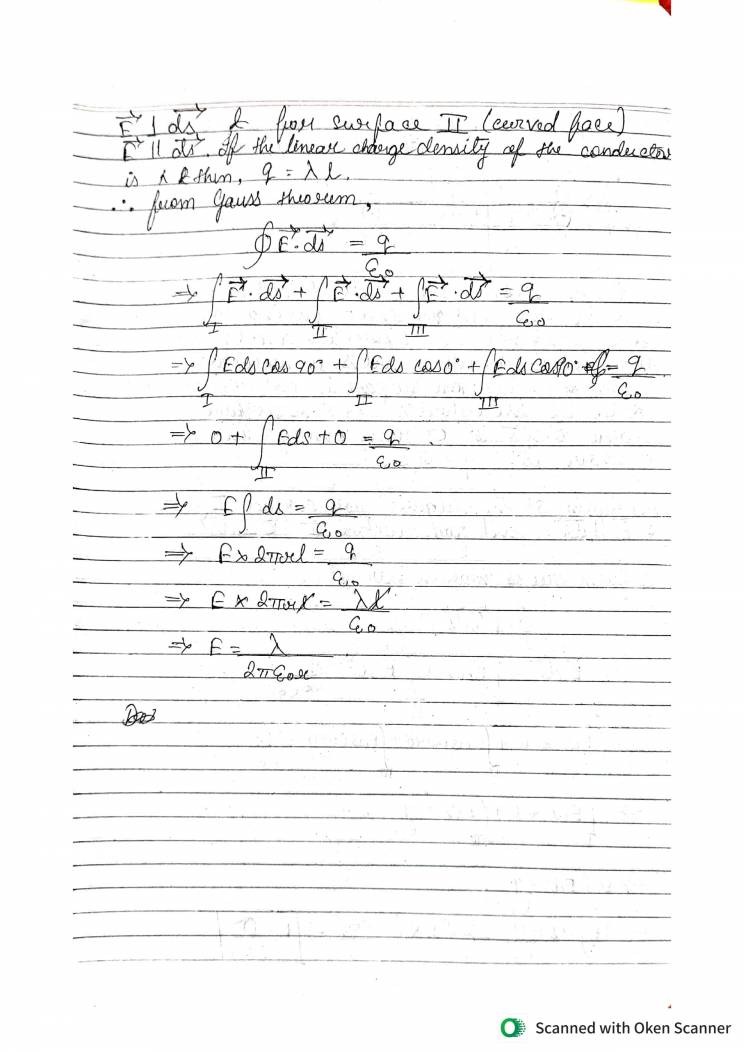 E⃗ ⊥ ds⃗ & for surface II (curved face)
E⃗ || ds⃗. If the linear charge density of the conductor
is λ & then, q = λ l.
∴ from Gauss theorem,
∮ E⃗ · ds⃗ = q/ε₀
=> ∫_I E⃗ · ds⃗ + ∫_II E⃗ · ds⃗ + ∫_III E⃗ · ds⃗ = q/ε₀
=> ∫_I E ds cos 90° + ∫_II E ds cos 0° + ∫_III E ds cos 90° = q/ε₀
=> 0 + ∫_II E ds + 0 = q/ε₀
=> E ∫ ds = q/ε₀
=> E × 2πrl = q/ε₀
=> E × 2πrl = λl/ε₀
=> E = λ/2πε₀r
Scanned with Oken Scanner